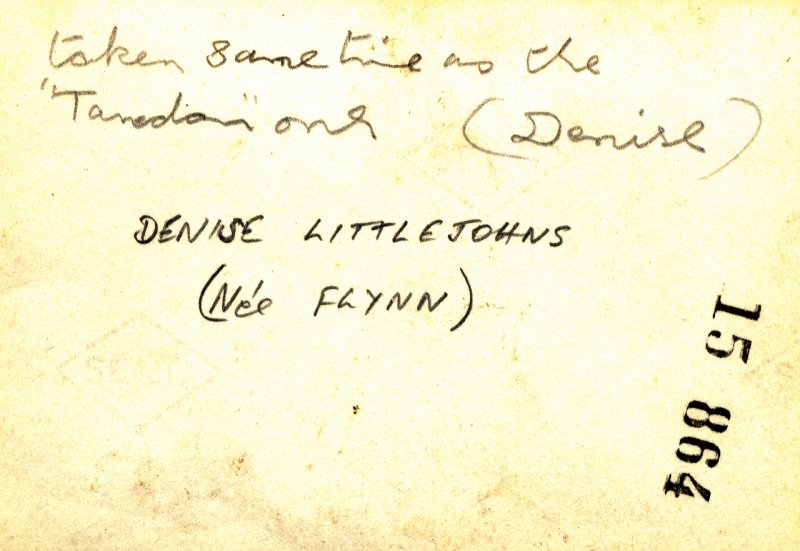 taken same time as the
"Tandom" one (Denise)
DENISE LITTLEJOHNS
(Née FLYNN)
15 864